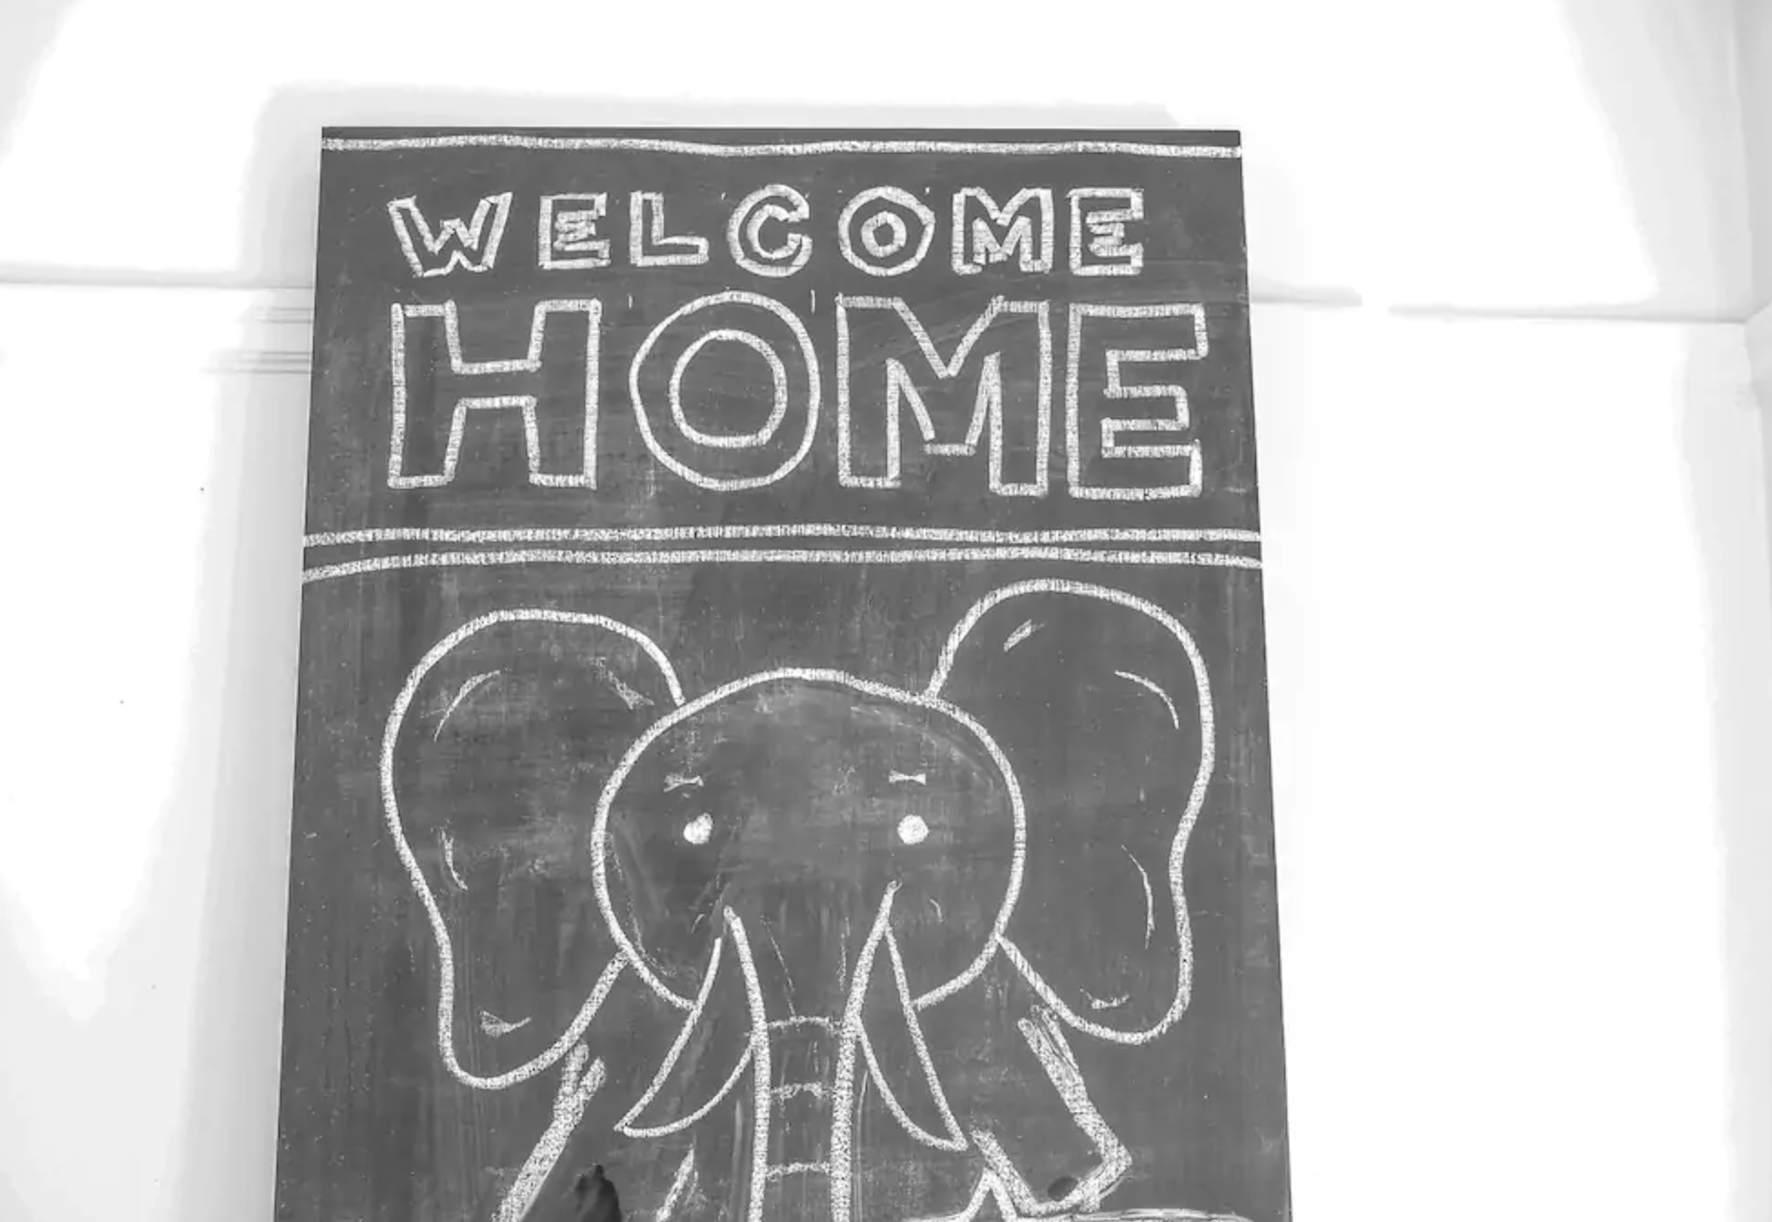 WELCOME
HOME